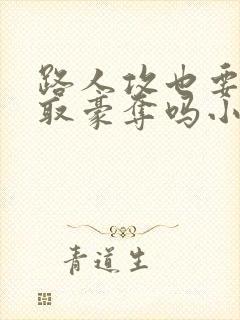 路人攻也要
取豪夺吗小
青道生